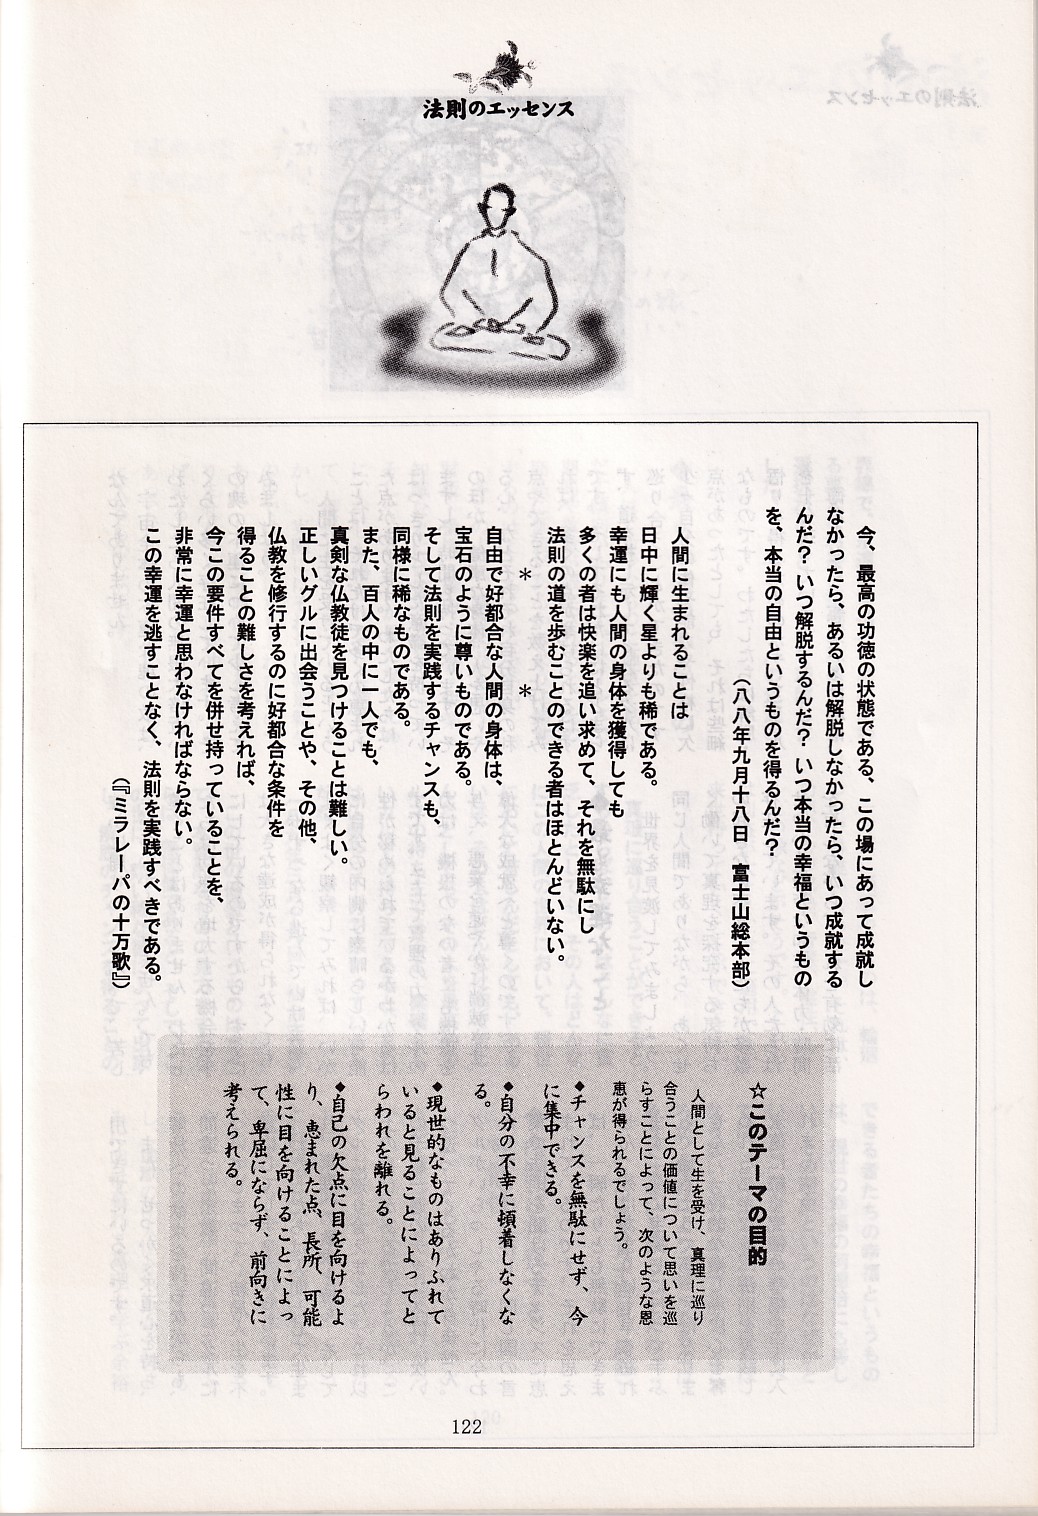 法則のエッセンス
今、最高の功徳の状態である、この場にあって成就し
なかったら、あるいは解脱しなかったら、いつ成就する
んだ？ いつ解脱するんだ？ いつ本当の幸福というもの
を、本当の自由というものを得るんだ？
（八八年九月十八日　富士山総本部）
人間に生まれることは
日中に輝く星よりも稀である。
幸運にも人間の身体を獲得しても
多くの者は快楽を追い求めて、それを無駄にし
法則の道を歩むことのできる者はほとんどいない。
＊　＊
自由で好都合な人間の身体は、
宝石のように尊いものである。
そして法則を実践するチャンスも、
同様に稀なものである。
また、百人の中に一人でも、
真剣な仏教徒を見つけることは難しい。
正しいグルに出会うことや、その他、
仏教を修行するのに好都合な条件を
得ることの難しさを考えれば、
今この要件すべてを併せ持っていることを、
非常に幸運と思わなければならない。
この幸運を逃すことなく、法則を実践すべきである。
（『ミラレーパの十万歌』）
☆このテーマの目的
人間として生を受け、真理に巡り
合うことの価値について思いを巡
らすことによって、次のような恩
恵が得られるでしょう。
◆チャンスを無駄にせず、今
に集中できる。
◆自分の不幸に頓着しなくな
る。
◆現世的なものはありふれて
いると見ることによってと
らわれを離れる。
◆自己の欠点に目を向けるよ
り、恵まれた点、長所、可能
性に目を向けることによっ
て、卑屈にならず、前向きに
考えられる。
122